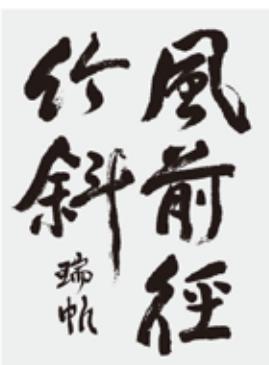 風前徑
竹斜
瑞帆